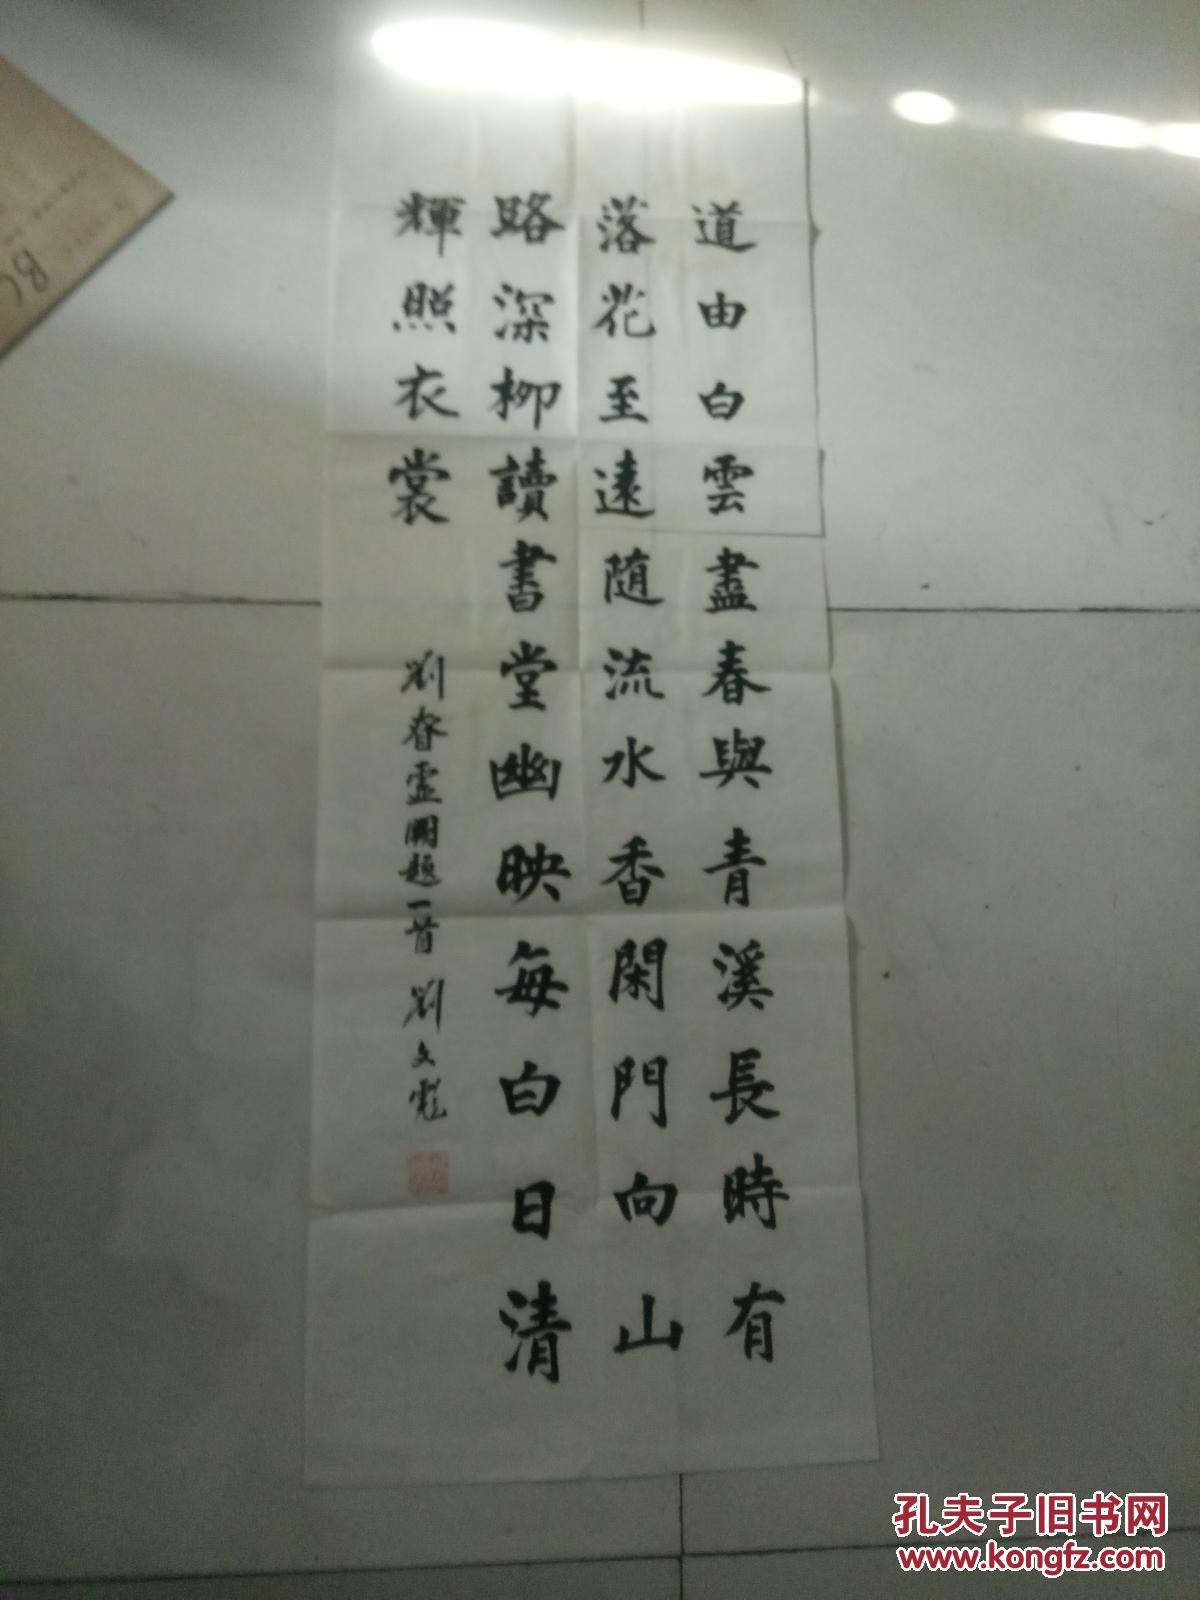 道由白雲盡春與青溪長時有
落花至遠随流水香閑門向山
路深柳讀書堂幽映每白日清
輝照衣裳
劉眘虛闕題一首 劉文
孔夫子旧书网
www.kongfz.com